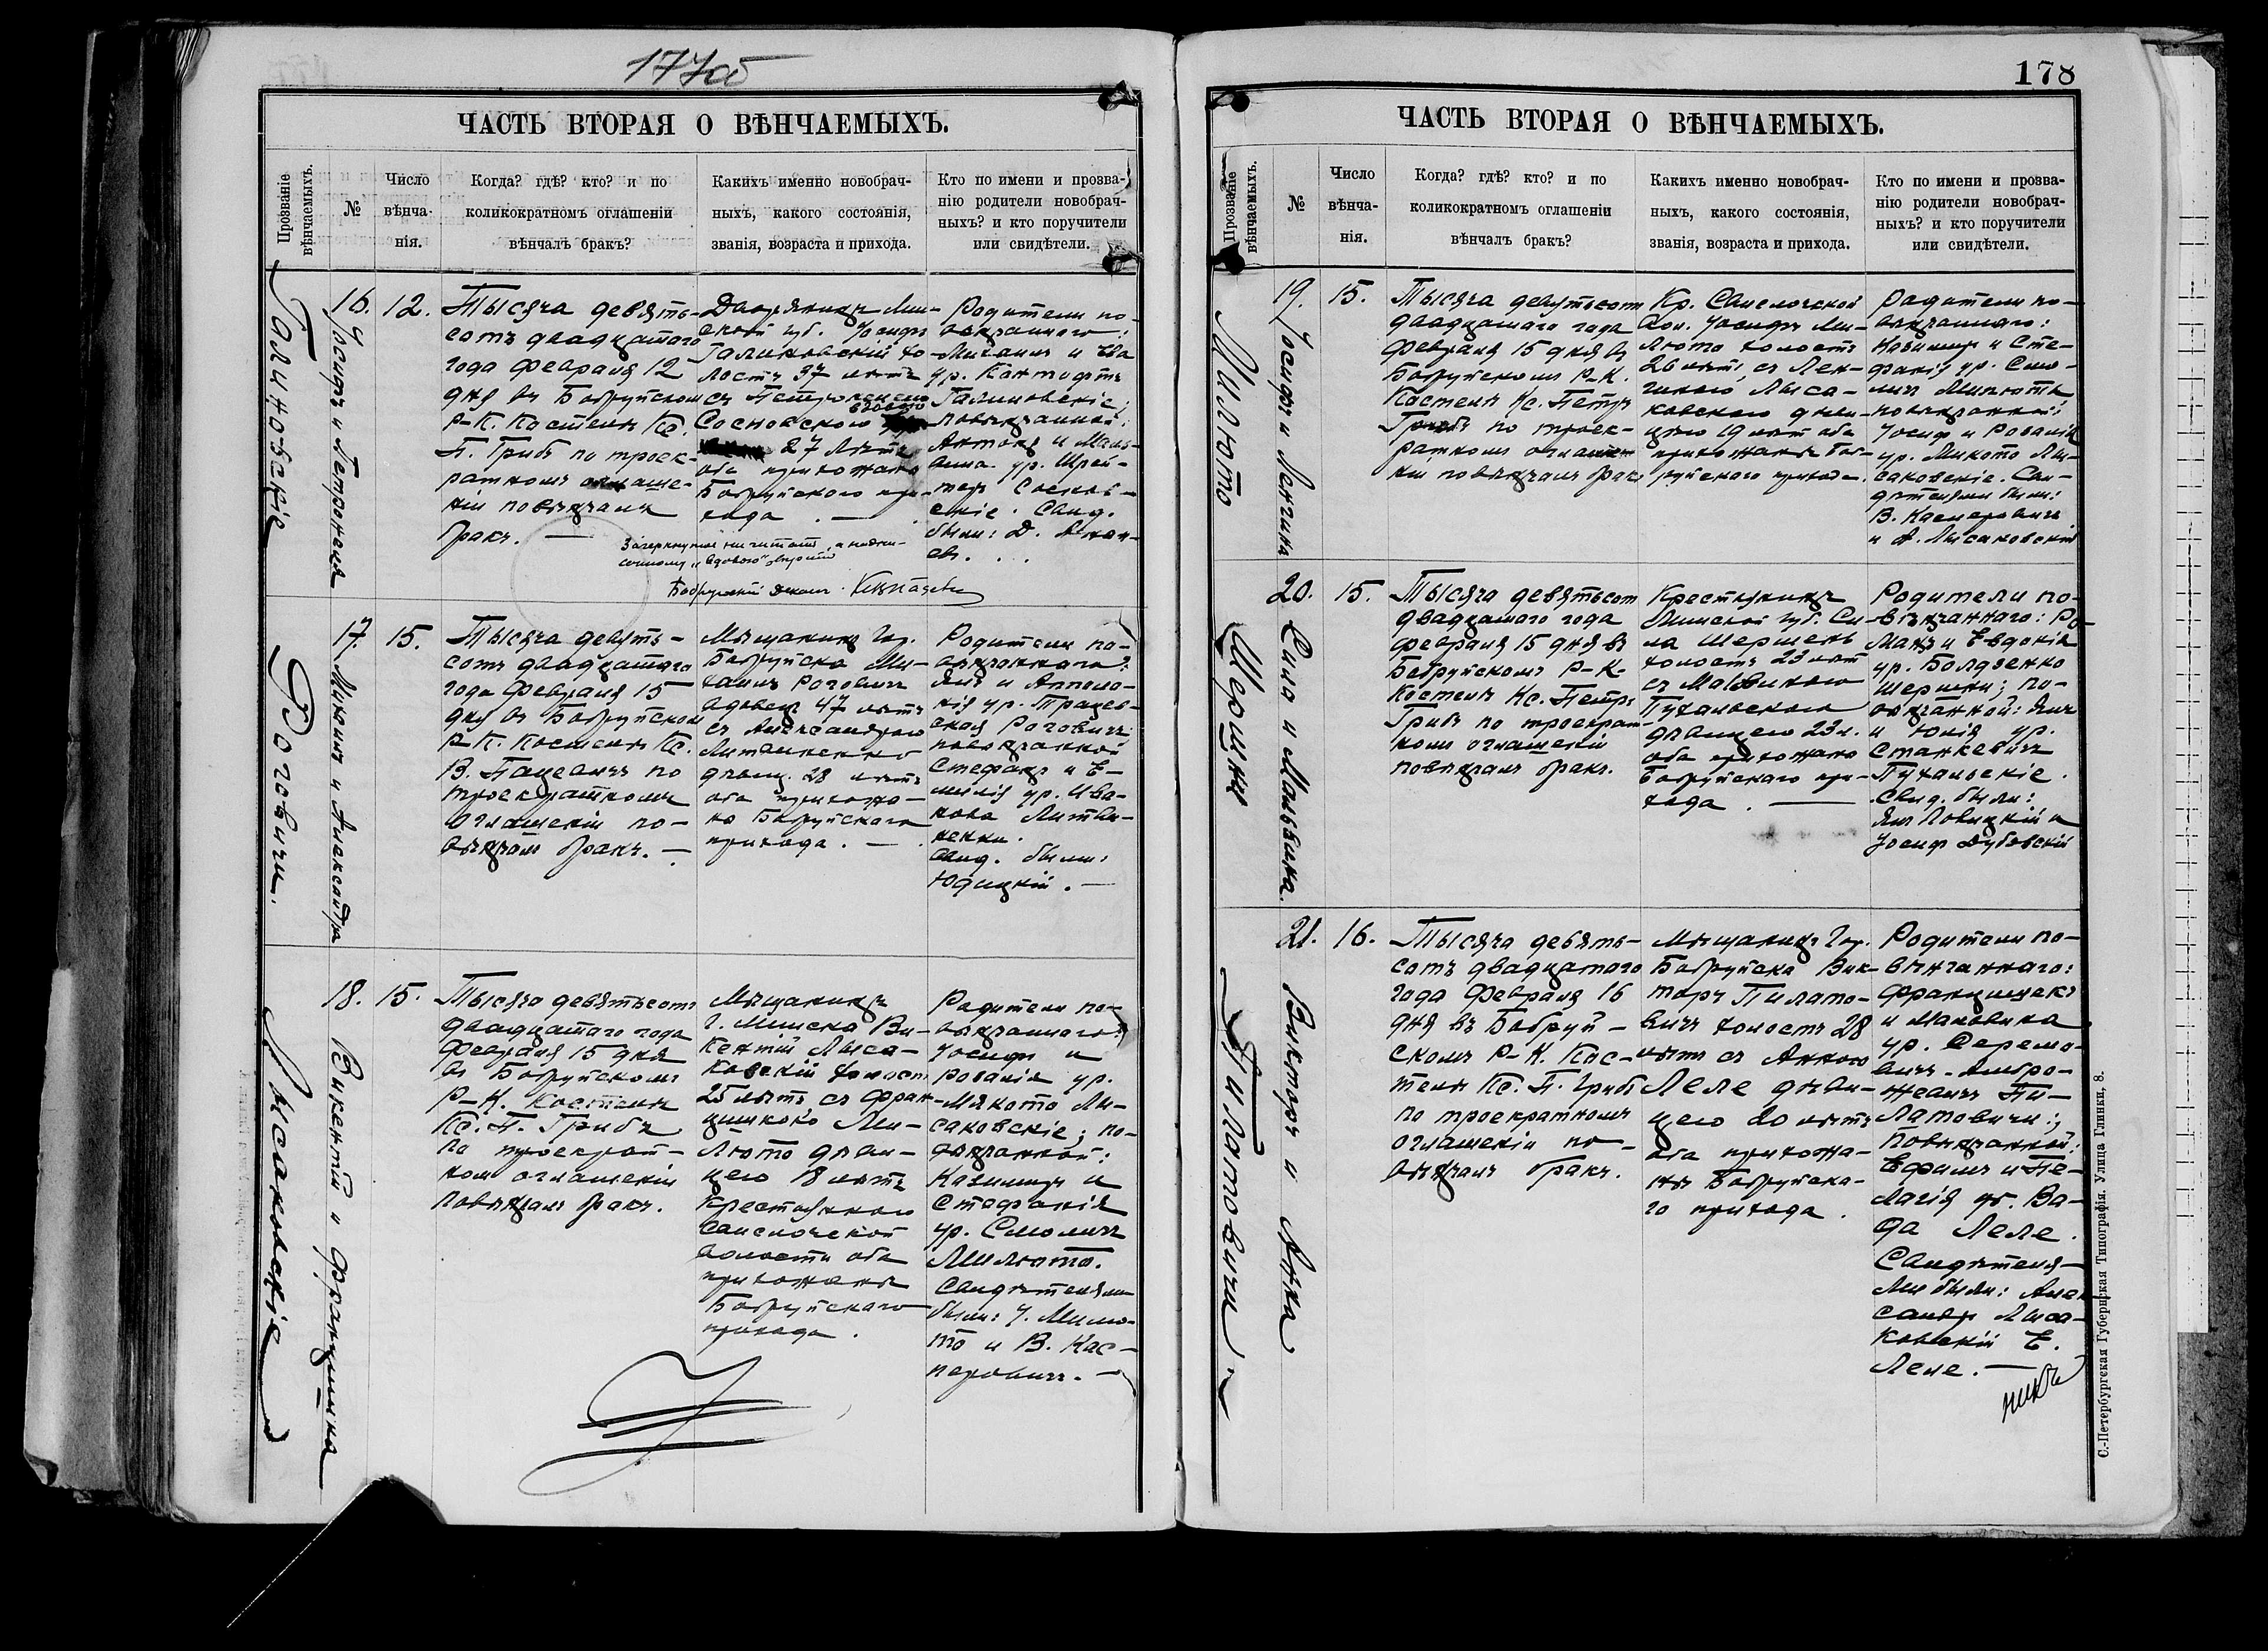 177об
ЧАСТЬ ВТОРАЯ О ВѢНЧАЕМЫХЪ.
Прозваніе вѣнчаемыхъ.
№
Число вѣнча-нія.
Когда? гдѣ? кто? и по
коликократномъ оглашеніи
вѣнчалъ бракъ?
Какихъ именно новобрач-
ныхъ, какого состоянія,
званія, возраста и прихода.
Кто по имени и прозва-
нію родители новобрач-
ныхъ? и кто поручители
или свидѣтели.
Галиновскіе
16.
Іосифъ и Петронеля
12.
Тысяча девять-
сотъ двадцатого
года февраля 12
дня въ Бобруйском
Р-К. Костелѣ Кс.
П. Грибъ по троек-
ратномъ оглаше-
ніи повѣнчалъ
бракъ. —
Дворянинъ Мин-
ской губ. Іосифъ
Галиновскій хо-
лостъ 37 лѣтъ
съ Петронелею
Сосновскою вдовою
27 лѣтъ
оба прихожане
Бобруйского при-
хода. —
Родители по-
вѣнчанного:
Михаилъ и Ева
ур.
Галиновскіе;
повѣнчанной:
Антонъ и
ур.
Соснов-
скіе. Свид.
были: Д.
Зачеркнутое не читать, а надпи-
санному „вдовою" вѣрить
Бобруйскій Деканъ
Роговичи.
17.
Михаилъ и Александра
15.
Тысяча девять-
сотъ двадцатого
года Февраля 15
дня въ Бобруйском
Р-К. Костелѣ Кс.
В. Пацевичъ по
троекратномъ
оглашеніи по-
вѣнчалъ бракъ. —
Мѣщанинъ гор.
Бобруйска Ми-
хаилъ Роговичъ
вдовецъ 47 лѣтъ
съ Александрою
Литвиненко
дѣвиц. 28 лѣтъ
оба прихожа-
не Бобруйского
прихода. —
Родители по-
вѣнчанного:
Янъ и Апполо-
нія ур.
Роговичи
повѣнчанной
Стефанъ и Е-
милія ур. Ива-
нова Литви-
ненки.
Свид. были:
Юдицкій. —
Лысаковскіе
18.
Викентій и Францишка
15.
Тысяча девятьсотъ
двадцатого года
Февраля 15 дня
въ Бобруйскомъ
Р-К. Костелѣ
Кс. П. Грибъ
по троекрат-
ном оглашеніи
повѣнчалъ бракъ.
Мѣщанинъ
г. Минска Ви-
кентій Лыса-
ковскій холост
25 лѣтъ съ Фран-
цишкою Ми-
люто дѣви-
цею 18 лѣтъ
крестьянкою
Свислочской
волости оба
прихожане
Бобруйскаго
прихода.
Родители по-
вѣнчанного:
Іосифъ и
Розалія ур.
Микото Лы-
саковскіе; по-
вѣнчанной:
Казимиръ и
Стефанія
ур. Смоличъ
Милюто.
Свидѣтелями
были: І. Милю-
то и В. Кас-
перовичъ. —
178
ЧАСТЬ ВТОРАЯ О ВѢНЧАЕМЫХЪ.
Прозваніе вѣнчаемыхъ.
№
Число вѣнча-нія.
Когда? гдѣ? кто? и по
коликократномъ оглашеніи
вѣнчалъ бракъ?
Какихъ именно новобрач-
ныхъ, какого состоянія,
званія, возраста и прихода.
Кто по имени и прозва-
нію родители новобрач-
ныхъ? и кто поручители
или свидѣтели.
Милюто
19.
Іосифъ и Ленгина
15.
Тысяча девятьсотъ
двадцатого года
Февраля 15 дня въ
Бобруйскомъ Р-К.
Костелѣ Кс. Петръ
Грибъ по троек-
ратном оглаше-
ніи повѣнчалъ бракъ
Кр. Свислочской
вол. Іосифъ Ми-
люто холостъ
26 лѣтъ съ Лен-
гиною Лыса-
ковскою дѣви-
цею 19 лѣт оба
прихожане Боб-
руйского прихода.
Родители по-
вѣнчанного:
Казимиръ и Сте-
фанія ур. Смо-
личъ Милюты
повѣнчанной:
Іосиф и Розалія
ур. Микото Лы-
саковскіе. Сви-
дѣтелями были:
В. Касперовичъ
и А. Лысаковскій
Шершни
20.
Сила и Мальвина.
15.
Тысяча девятьсот
двадцатого года
февраля 15 дня въ
Бобруйскомъ Р-К.
Костелѣ Кс. Петръ
Грибъ по троекрат
ном оглашеніи
повѣнчалъ бракъ.
Крестьянинъ
Минской губ. Си-
ла Шершень
холостъ 23 лѣт
съ Мальвиною
Пухальского
дѣвицею 23 л.
оба прихожане
Бобруйскаго при-
хода. —
Родители по-
вѣнчанного: Ро-
манъ и Евдокія
ур. Болдзенко
Шершни; по-
вѣнчанной: Янъ
и Юлія ур.
Станкевичъ
Пухальскіе.
Свид. были:
Янъ Новицкій и
Іосиф Дубовскій
Пилатовичи.
21.
Викторъ и Анна
16.
Тысяча девять-
сотъ двадцатого
года Февраля 16
дня въ Бобруй-
скомъ Р-К. Кос-
телѣ Кс. П. Грибъ
по троекратномъ
оглашеніи по-
вѣнчалъ бракъ.
Мѣщанинъ гор.
Бобруйска Вик-
торъ Пилато-
вичъ холостъ 28
лѣтъ съ Анною
Леле дѣви-
цею 20 лѣтъ
оба прихожа-
не Бобруйска-
го прихода.
Родители по-
вѣнчанного:
Францишекъ
и
ур.
Пи-
латовичи;
повѣнчанной:
Ефимъ и Пе-
лагія ур. Ва-
да Леле.
Свидѣтеля-
ми были: Алек
сандръ Лыса-
ковскій Е.
Леле. —
С.-Петербургская Губернская Типографія. Улица Глинки, 8.